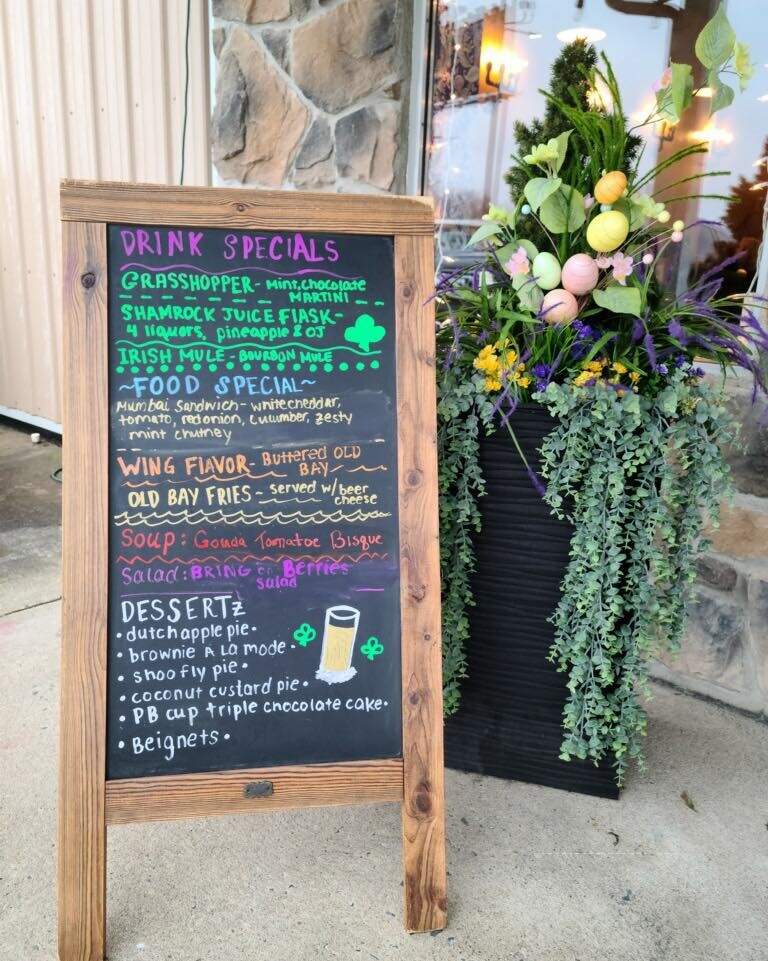 DRINK SPECIALS
GRASSHOPPER - mint, chocolate
MARTINI
SHAMROCK JUICE FlASK -
4 liquors, pineapple & OJ
IRISH MULE - BOURBON MULE
~FOOD SPECIAL~
Mumbai Sandwich - white cheddar,
tomato, red onion, cucumber, zesty
mint chutney
WING FLAVOR - Buttered OLD
BAY
OLD BAY FRIES - served w/ beer
cheese
Soup: Gouda Tomatoe Bisque
Salad: BRING on Berries
salad
DESSERTz
• dutch apple pie •
• brownie A La mode •
• shoo fly pie •
• coconut custard pie •
• PB cup triple chocolate cake •
• Beignets •